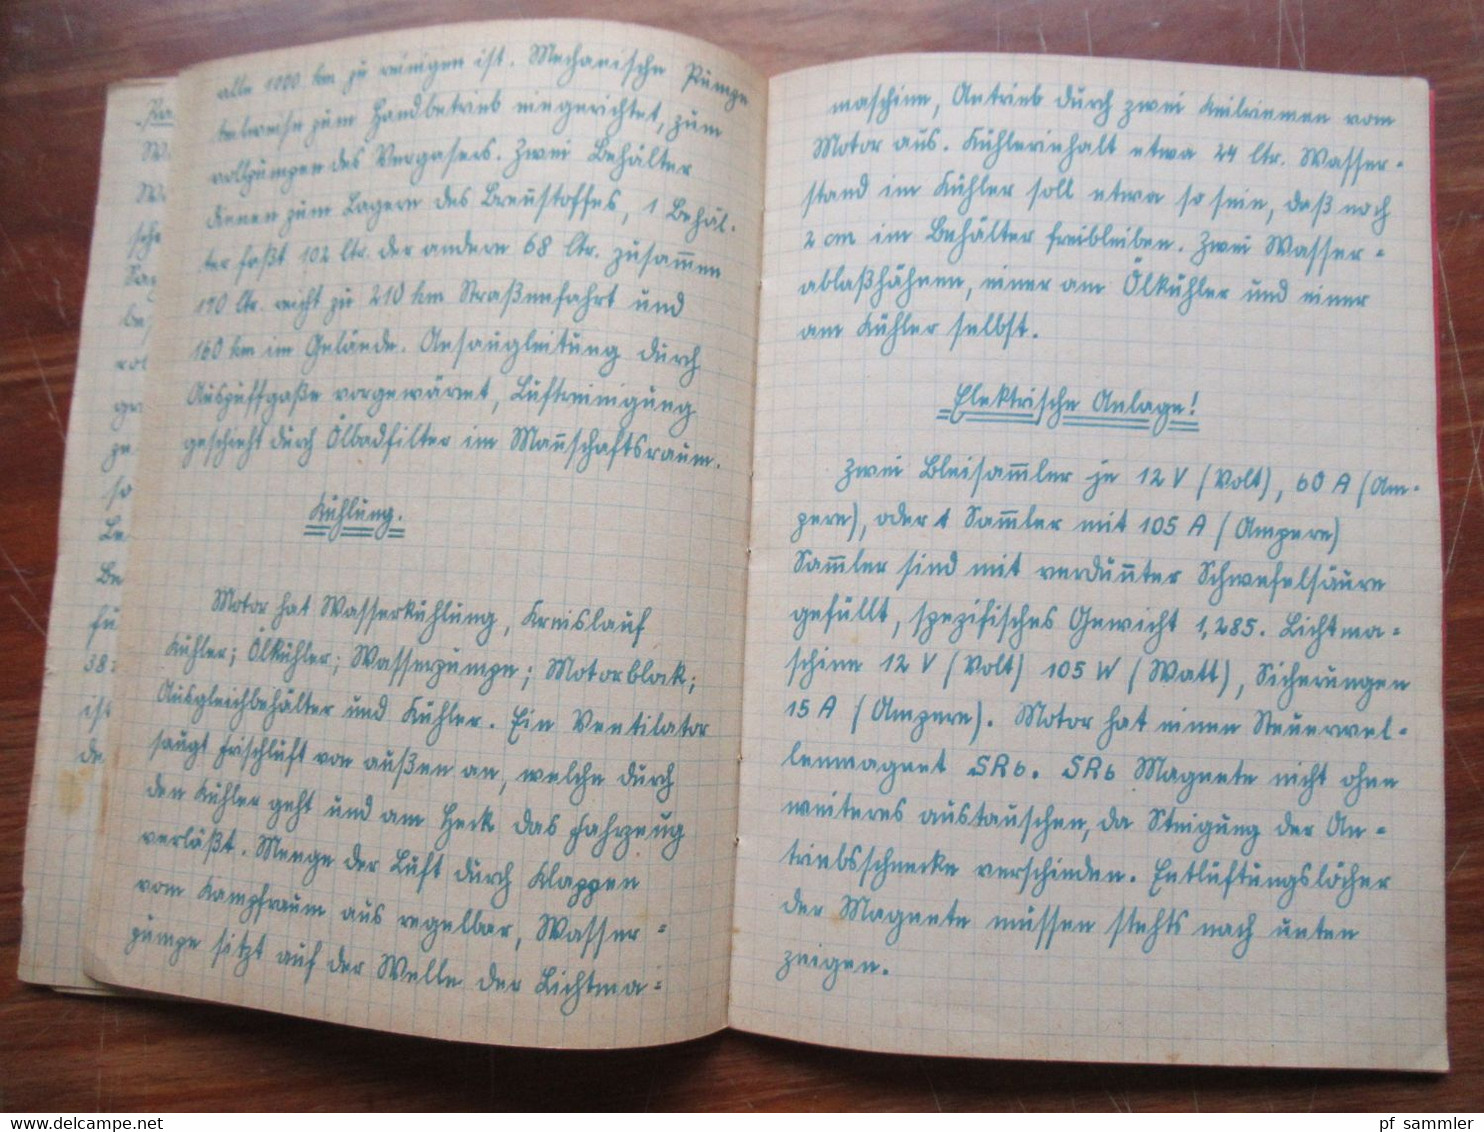 alle 1000 km zu reinigen ist. Mechanische Pumpe
teilweise zum Handbetrieb eingerichtet, zum
vollpumpen des Vergasers. Zwei Behälter
dienen zum Lagern des Brennstoffes, 1 Behäl-
ter faßt 102 ltr. der andere 68 ltr. zusammen
170 ltr. reicht zu 210 km Straßenfahrt und
160 km im Gelände. Ansaugleitung durch
Auspuffgaße vorgewärmt, Luftreinigung
geschieht durch Ölbadfilter im Mannschaftsraum.
Kühlung.
Motor hat Wasserkühlung, Kreislauf
Kühler; Ölkühler; Wasserpumpe; Motorblock;
Ausgleichbehälter und Kühler. Ein Ventilator
saugt Frischluft von außen an, welche durch
den Kühler geht und am Heck das Fahrzeug
verläßt. Menge der Luft durch Klappen
vom Kampfraum aus regelbar, Wasser-
pumpe sitzt auf der Welle der Lichtma-
maschine, Antrieb durch zwei Keilriemen vom
Motor aus. Kühlerinhalt etwa 24 ltr. Wasser-
stand im Kühler soll etwa so sein, daß noch
2 cm im Behälter freibleiben. Zwei Wasser-
ablaßhähnen, einer am Ölkühler und einer
am Kühler selbst.
Elektrische Anlage!
Zwei Bleisammler je 12 V (Volt), 60 A (Am-
pere), oder 1 Sammler mit 105 A (Ampere)
Sammler sind mit verdünnter Schwefelsäure
gefüllt, spezifisches Gewicht 1,285. Lichtma-
schine 12 V (Volt) 105 W (Watt), Sicherungen
15 A (Ampere). Motor hat einen Steuerwel-
lenmagnet SR6. SR6 Magnete nicht ohne
weiteres austauschen, da Steigung der An-
triebsschnecke verschieden. Entlüftungslöcher
der Magnete müssen stehts nach unten
zeigen.
38
ist
de
pf_sammler